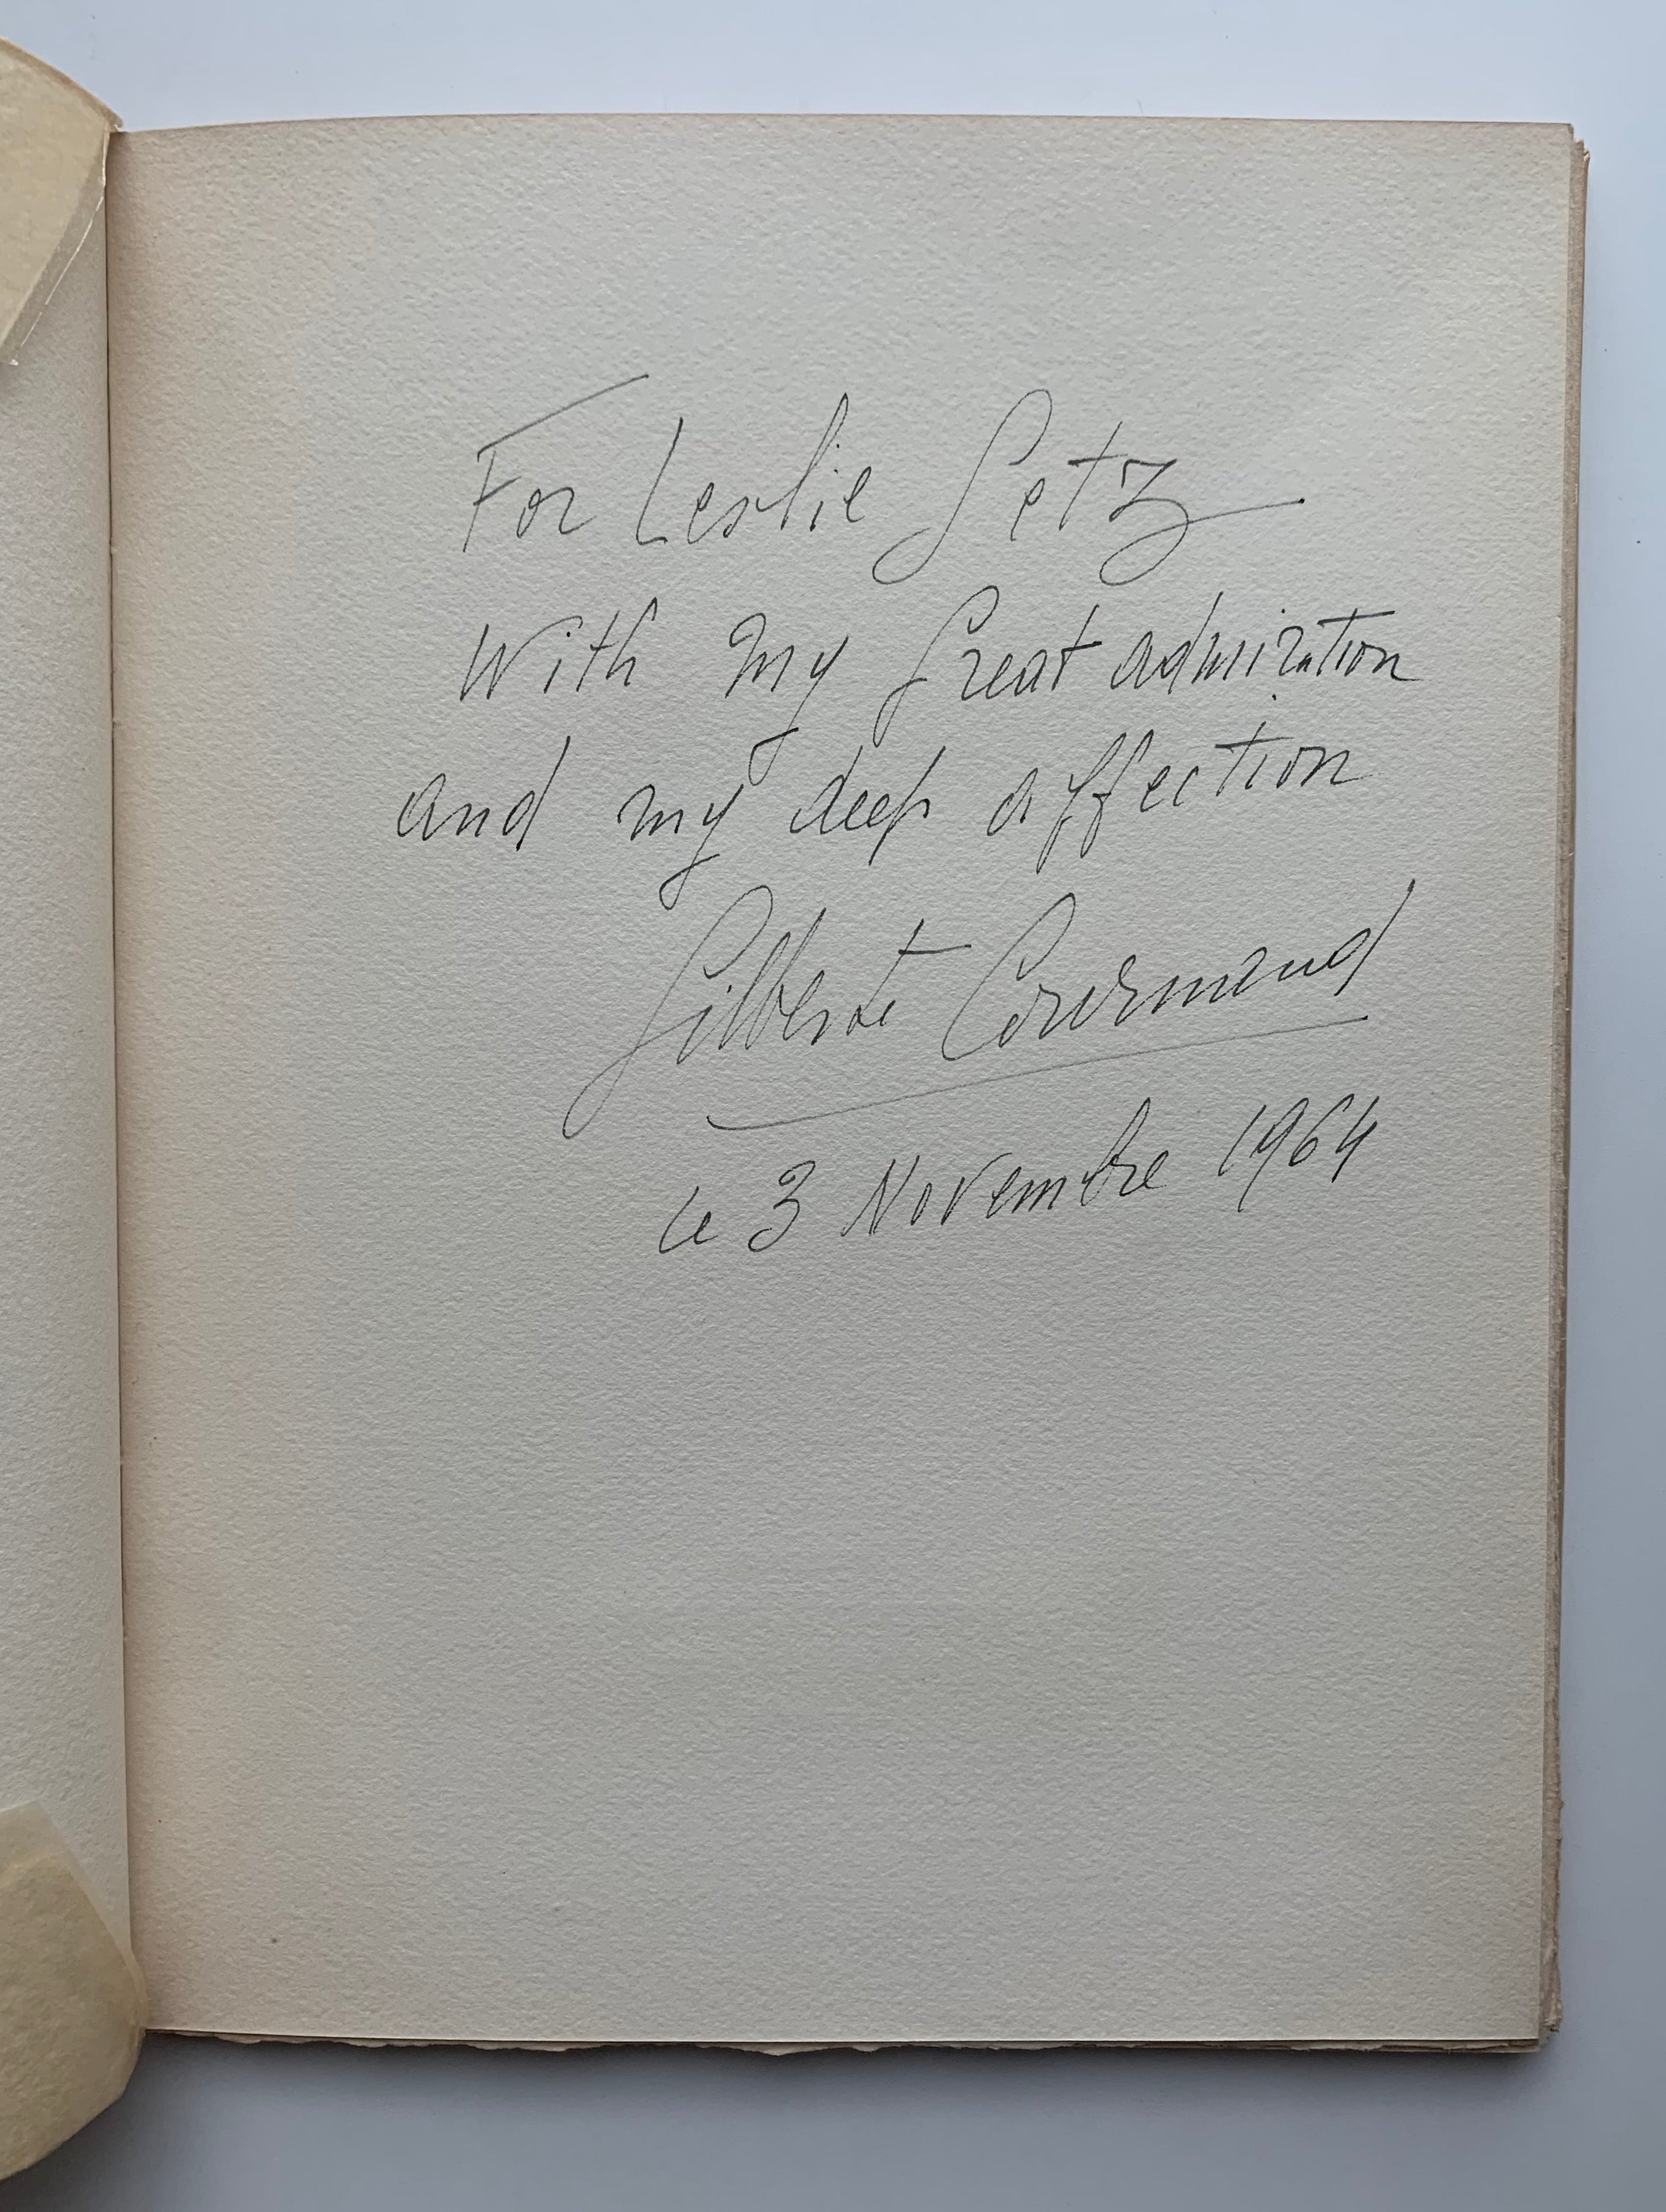 For Leslie Getz
With my Great admiration
and my deep affection
Gilberte Cournand
le 3 Novembre 1964